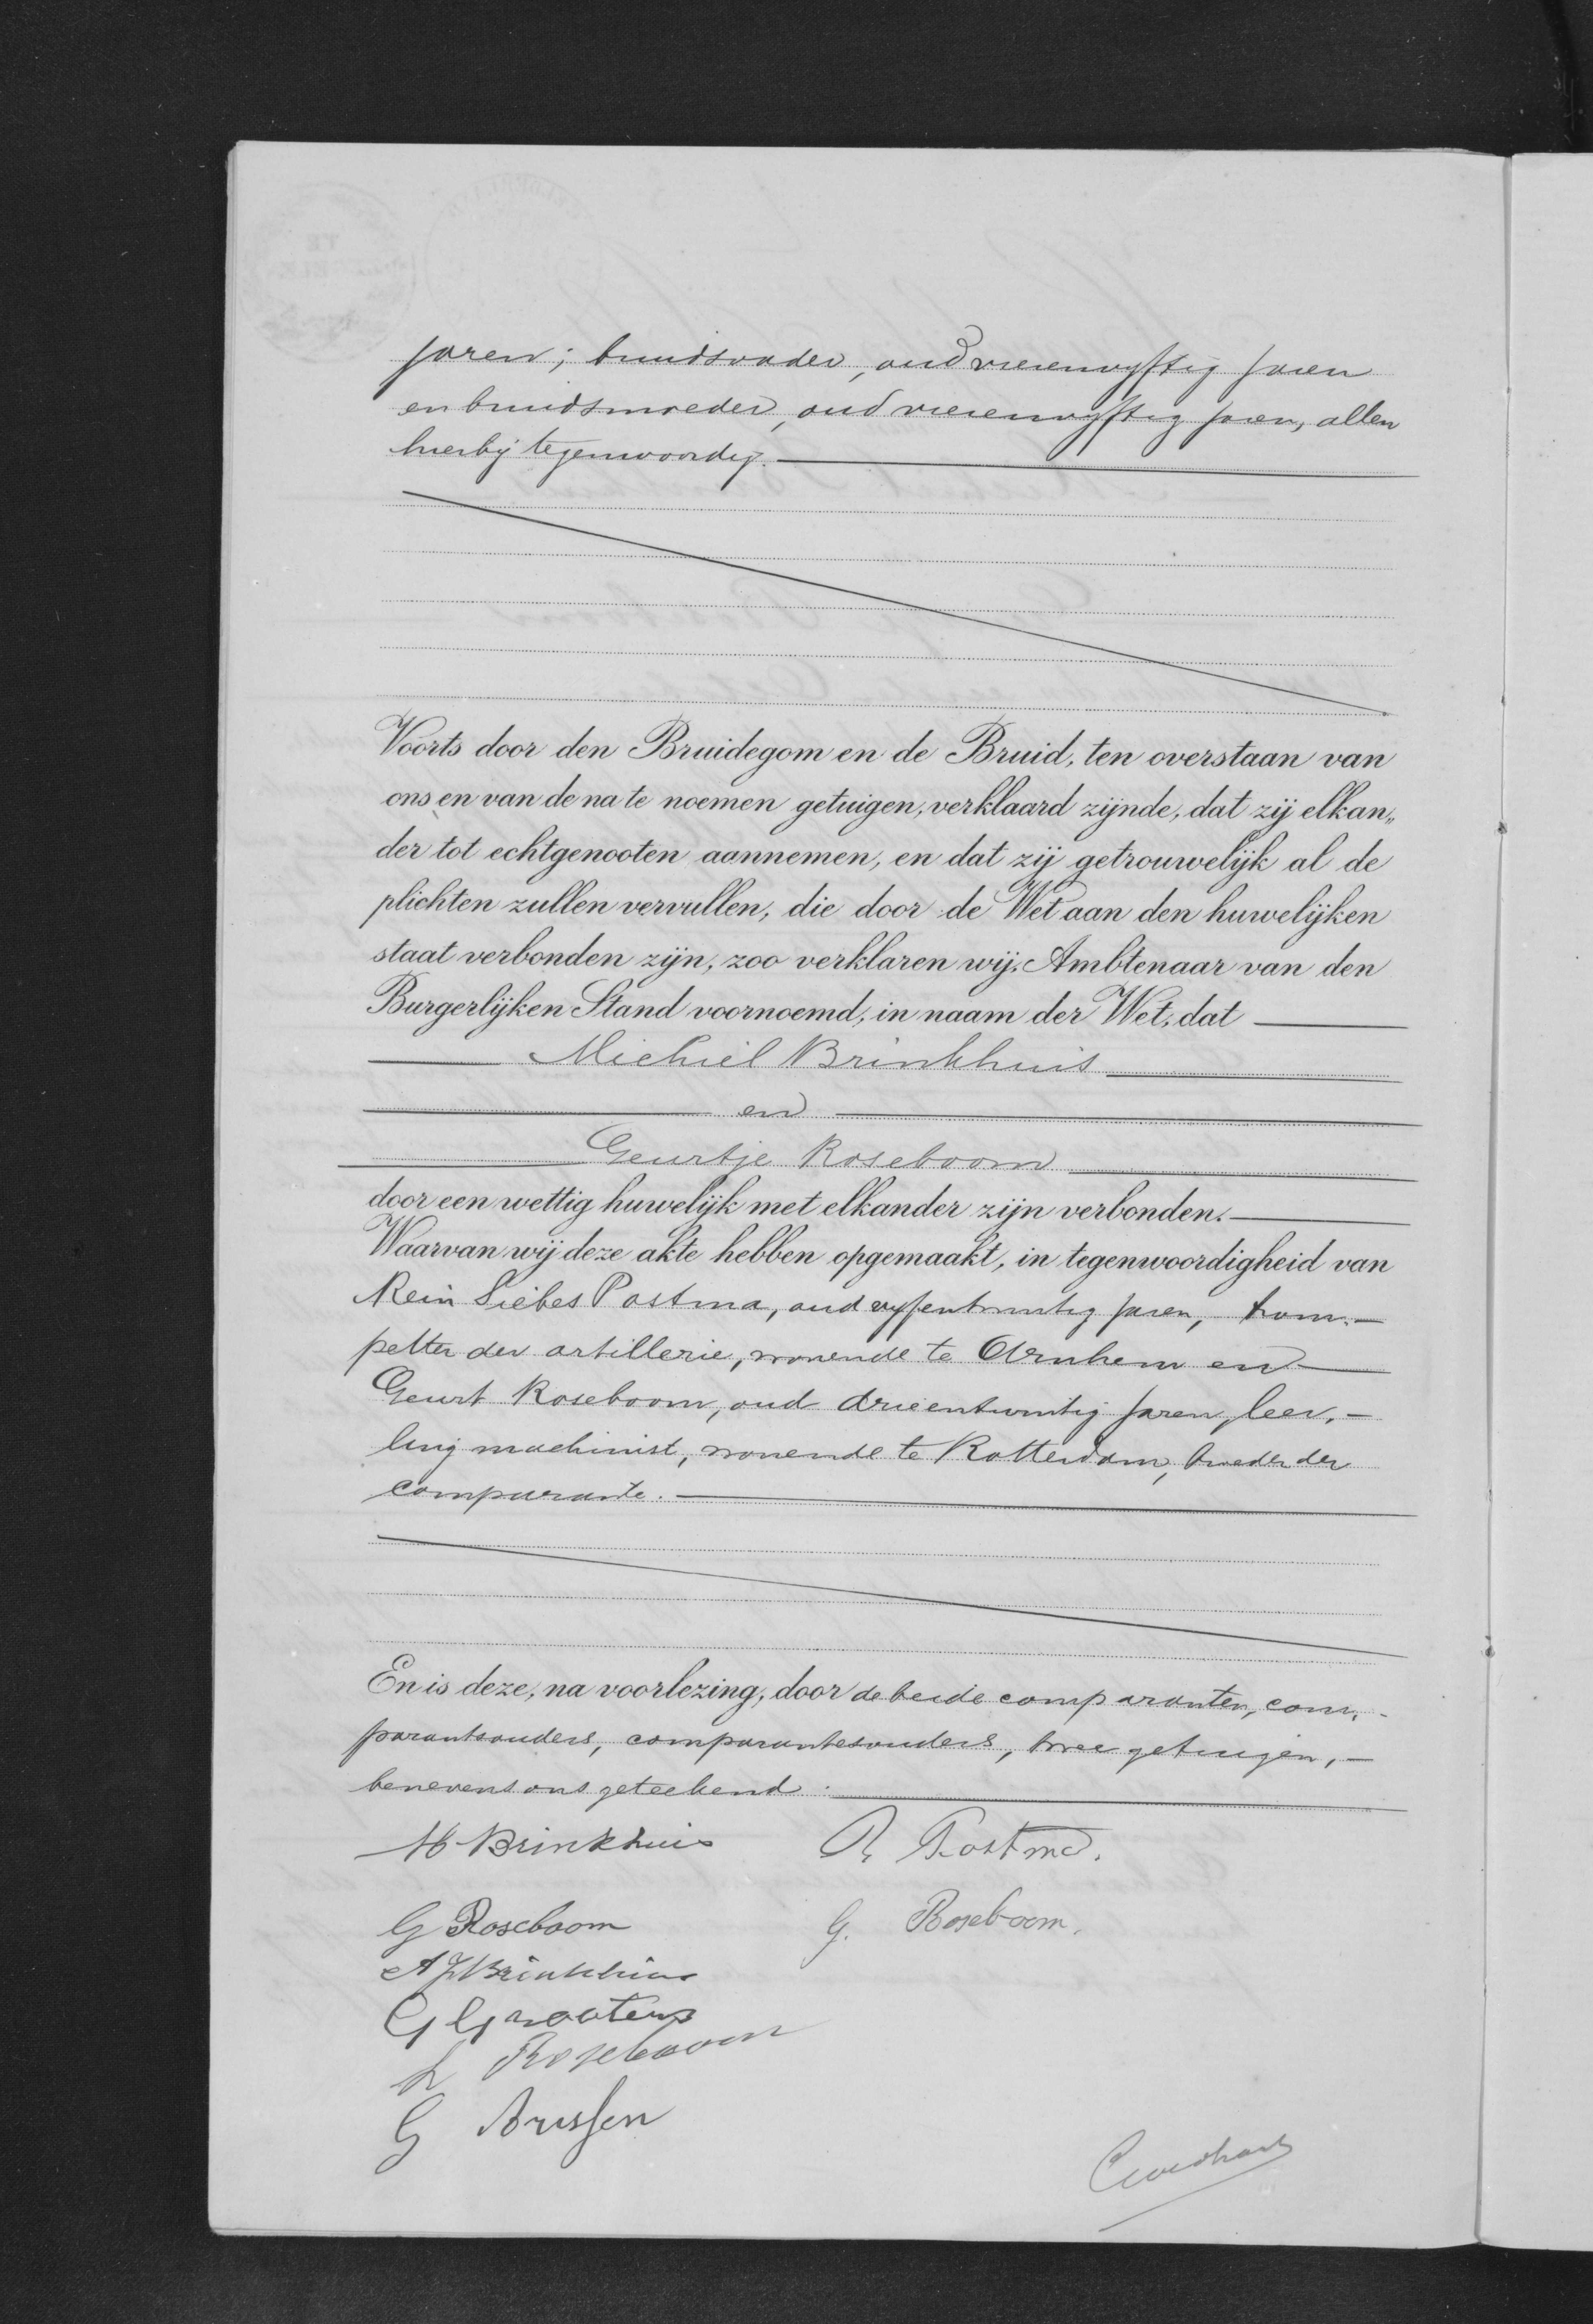 jaren; bruidsvader, oud vierenvyftig jaren
en bruidsmoeder, oud vierenvyftig jaren, allen
hierbij tegenwoordig.
Voorts door den Bruidegom en de Bruid, ten overstaan van
ons en van de na te noemen getuigen, verklaard zijnde, dat zij elkan„
der tot echtgenooten aannemen, en dat zij getrouwelijk al de
plichten zullen vervullen, die door de Wet aan den huwelijken
staat verbonden zijn, zoo verklaren wij, Ambtenaar van den
Burgerlijken Stand voornoemd, in naam der Wet, dat
Michiel Brinkhuis
en
Geurtje Roseboom
door een wettig huwelijk met elkander zijn verbonden.
Waarvan wij deze akte hebben opgemaakt, in tegenwoordigheid van
Rein Siebes Postma, oud vyfentwintig jaren, trom-
petter der artillerie, wonende te Arnhem en
Geurt Roseboom, oud drieentwintig jaren, leer-
ling machinist, wonende te Rotterdam, broeder der
comparante.
En is deze, na voorlezing, door de beide comparanten, com-
parantsouders, comparantesouders, twee getuigen,
benevens ons geteekend.
M Brinkhuis R Postma.
G Roseboom G. Roseboom.
A J Brinkhuis
G Grooters
Roseboom
G Arissen